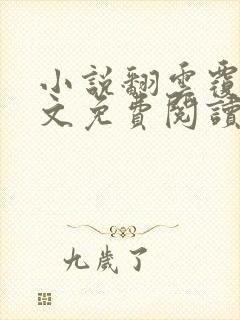 小說翻雲覆
文免費閱讀
九歲了